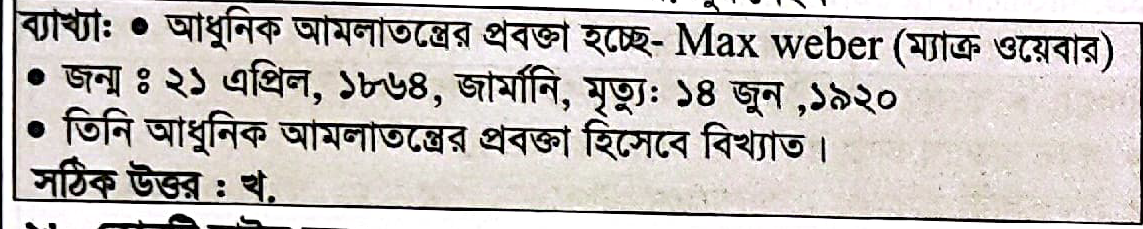 ব্যাখ্যা: ● আধুনিক আমলাতন্ত্রের প্রবক্তা হচ্ছে- Max weber (ম্যাক্স ওয়েবার)
● জন্ম ঃ ২১ এপ্রিল, ১৮৬৪, জার্মানি, মৃত্যুঃ ১৪ জুন ,১৯২০
● তিনি আধুনিক আমলাতন্ত্রের প্রবক্তা হিসেবে বিখ্যাত।
সঠিক উত্তর : খ.